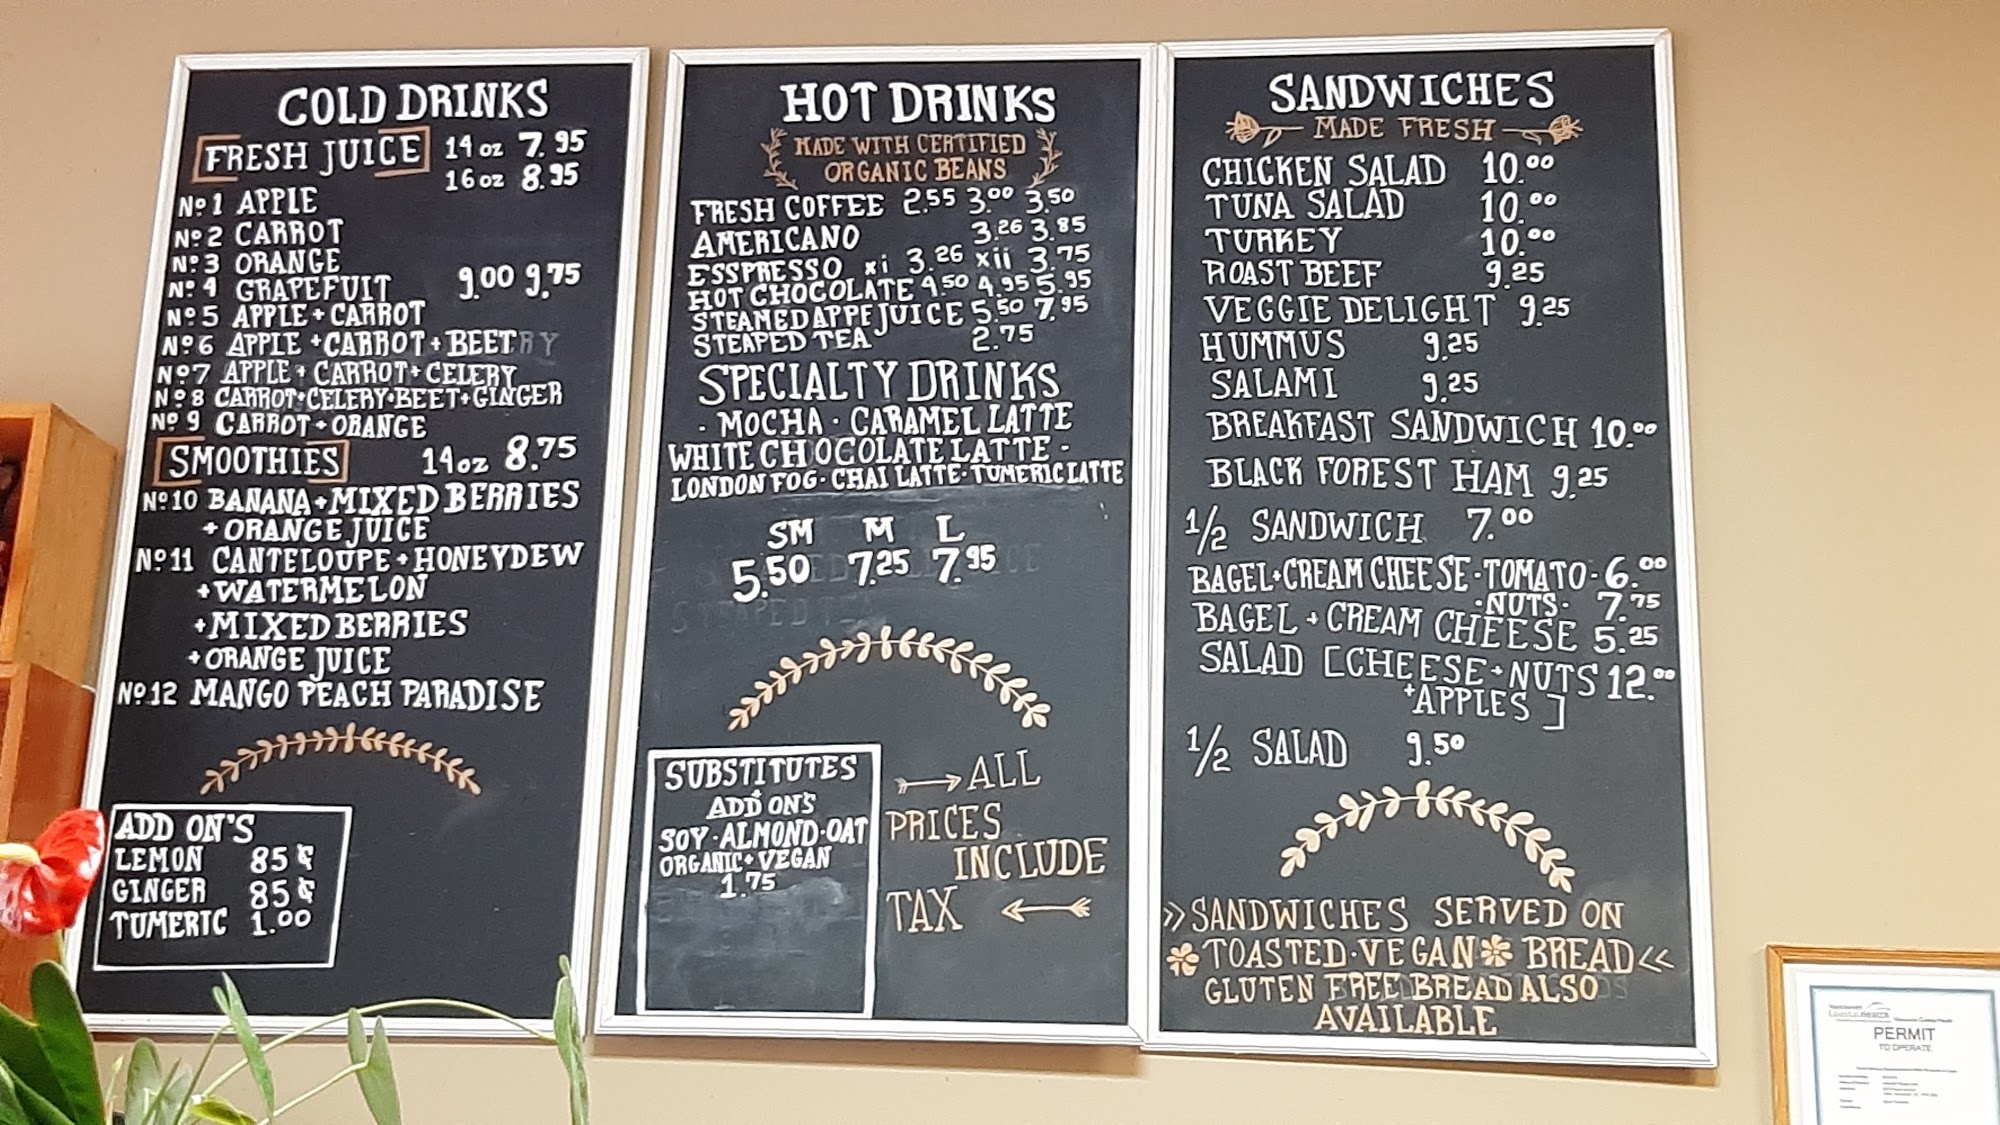 COLD DRINKS
FRESH JUICE 14 oz 7.95
16 oz 8.95
Nº1 APPLE
Nº2 CARROT
Nº3 ORANGE
Nº4 GRAPEFUIT 9.00 9.75
Nº5 APPLE + CARROT
Nº6 APPLE + CARROT + BEET
Nº7 APPLE + CARROT + CELERY
Nº8 CARROT + CELERY + BEET + GINGER
Nº9 CARROT + ORANGE
SMOOTHIES 14oz 8.75
Nº10 BANANA + MIXED BERRIES
+ ORANGE JUICE
Nº11 CANTELOUPE + HONEYDEW
+ WATERMELON
+ MIXED BERRIES
+ ORANGE JUICE
Nº12 MANGO PEACH PARADISE
ADD ON'S
LEMON 85¢
GINGER 85¢
TUMERIC 1.00
HOT DRINKS
MADE WITH CERTIFIED
ORGANIC BEANS
FRESH COFFEE 2.55 3.00 3.50
AMERICANO 3.26 3.85
ESSPRESSO xi 3.26 xii 3.75
HOT CHOCOLATE 4.50 4.95 5.95
STEAMED APPE JUICE 5.50 7.95
STEAPED TEA 2.75
SPECIALTY DRINKS
· MOCHA · CARAMEL LATTE
WHITE CHOCOLATE LATTE ·
LONDON FOG · CHAI LATTE · TUMERIC LATTE
SM M L
5.50 7.25 7.95
SUBSTITUTES
+
ADD ON'S
SOY · ALMOND · OAT
ORGANIC + VEGAN
1.75
ALL
PRICES
INCLUDE
TAX
SANDWICHES
MADE FRESH
CHICKEN SALAD 10.00
TUNA SALAD 10.00
TURKEY 10.00
ROAST BEEF 9.25
VEGGIE DELIGHT 9.25
HUMMUS 9.25
SALAMI 9.25
BREAKFAST SANDWICH 10.00
BLACK FOREST HAM 9.25
1/2 SANDWICH 7.00
BAGEL + CREAM CHEESE · TOMATO · 6.00
· NUTS · 7.75
BAGEL + CREAM CHEESE 5.25
SALAD [CHEESE + NUTS 12.00
+ APPLES]
1/2 SALAD 9.50
>> SANDWICHES SERVED ON
TOASTED · VEGAN BREAD <<
GLUTEN FREE BREAD ALSO
AVAILABLE
PERMIT
TO OPERATE